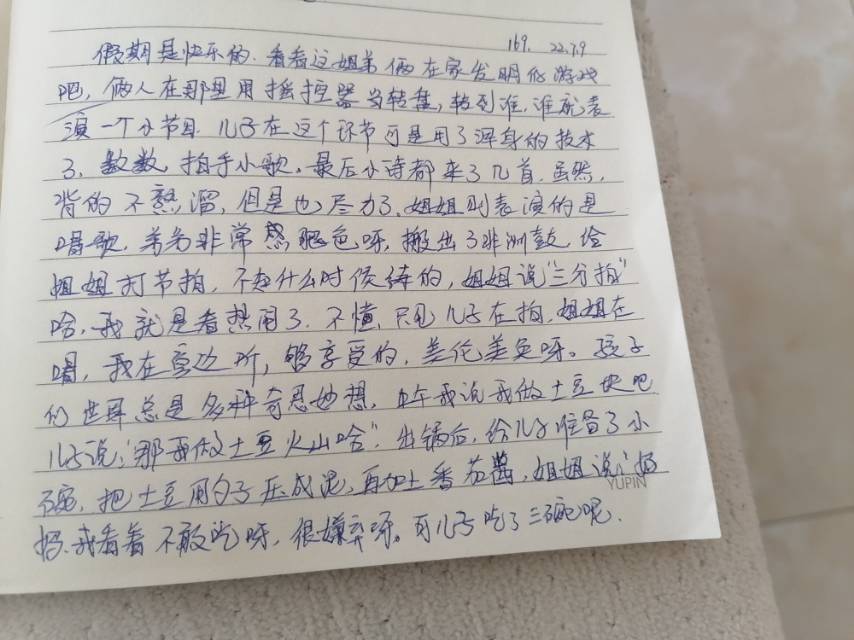 169. 22.7.9
假期是快乐的.看看这姐弟俩在家发明的游戏
吧,俩人在那里用摇控器当转盘,转到谁,谁就表
演一个小节目.儿子在这个环节可是用了浑身的技术
了,数数,拍手小歌,最后小诗都来了几首.虽然,
背的不熟溜,但是也尽力了.姐姐则表演的是
唱歌,弟弟非常 色呀,搬出了非洲鼓给
姐姐打节拍,不知什么时候练的,姐姐说"三分拍"
哈,我就是看热闹了.不懂,只见儿子在拍,姐姐在
唱,我在旁边听,够享受的,美伦美奂呀。孩子
们世界总是多种奇思妙想,中午我说我做土豆块吧
儿子说:"那再做土豆火山哈".出锅后,给儿子准备了小
碗,把土豆用勺子压成泥,再加上番茄酱,姐姐说:"妈
妈,我看着不敢吃呀,很嫌弃呀。可儿子吃了三碗呢.
YUPIN